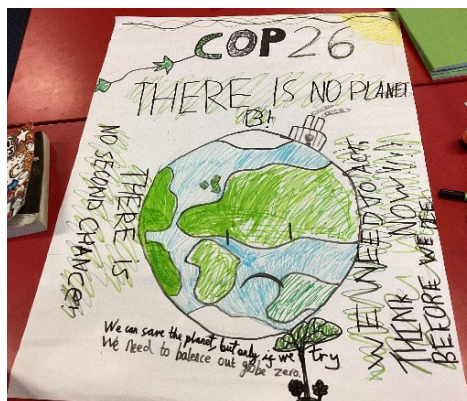 COP26
THERE IS NO PLANET
B!
THERE IS
NO SECOND CHANCE
WE NEED TO ACT
NOW!!!!
THINK
BEFORE WE
We can save the planet, but only if we try
We need to balence out globe zero.